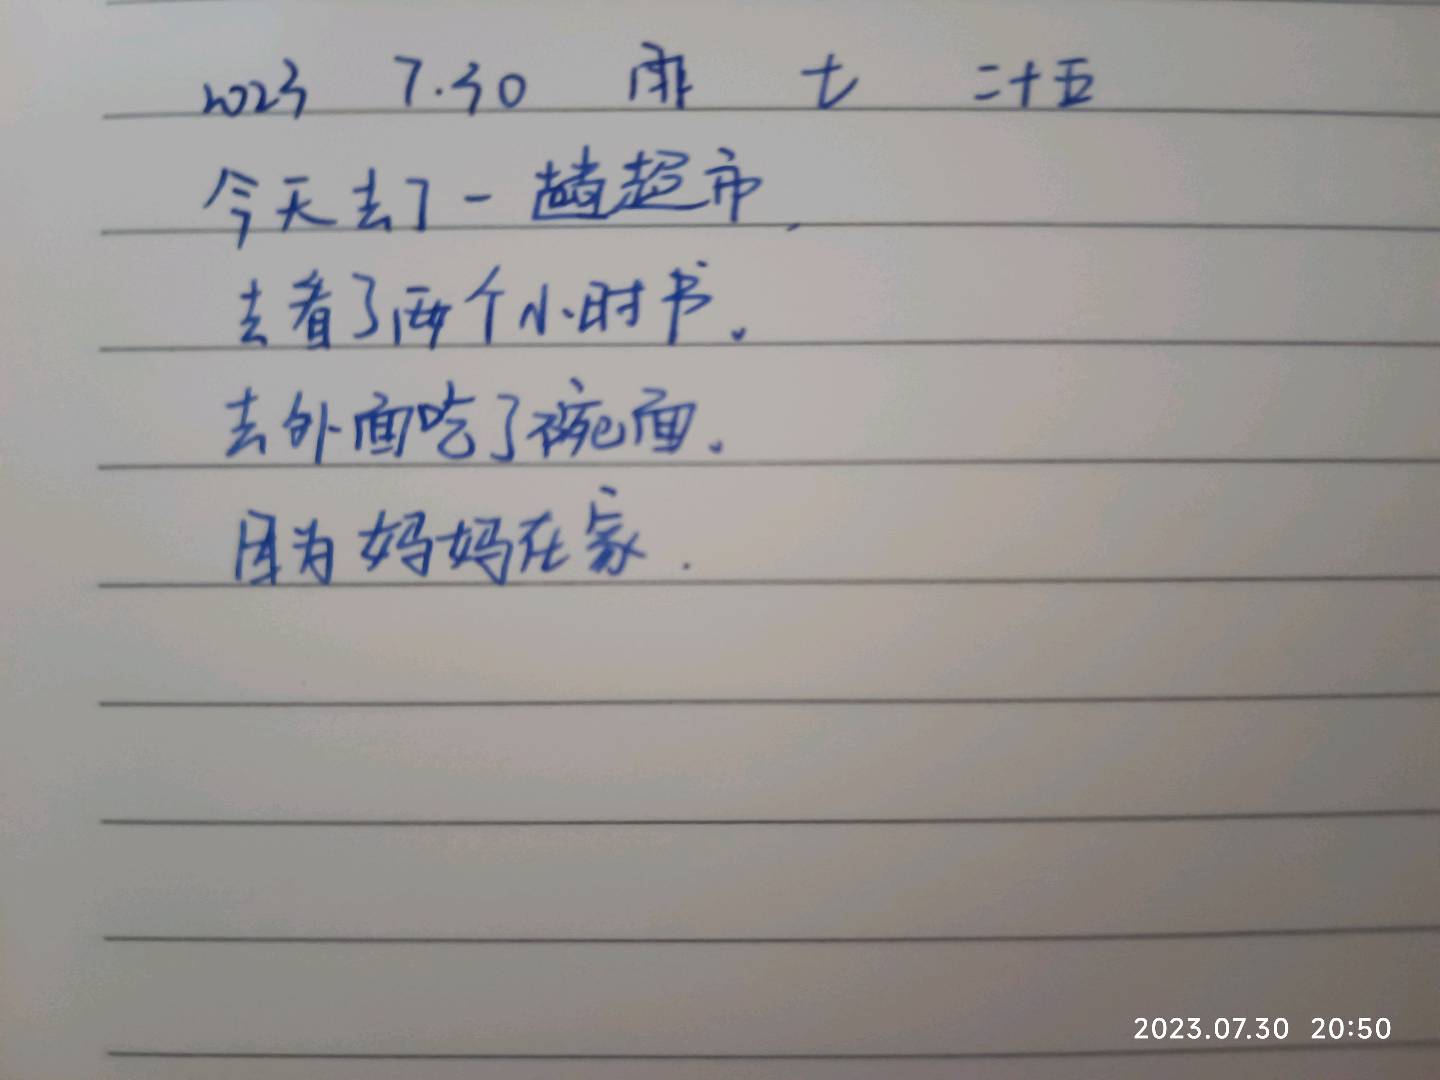 2023 7.30 雨 七 二十五
今天去了一趟超市,
去看了两个小时书。
去外面吃了碗面。
因为妈妈在家.
2023.07.30 20:50